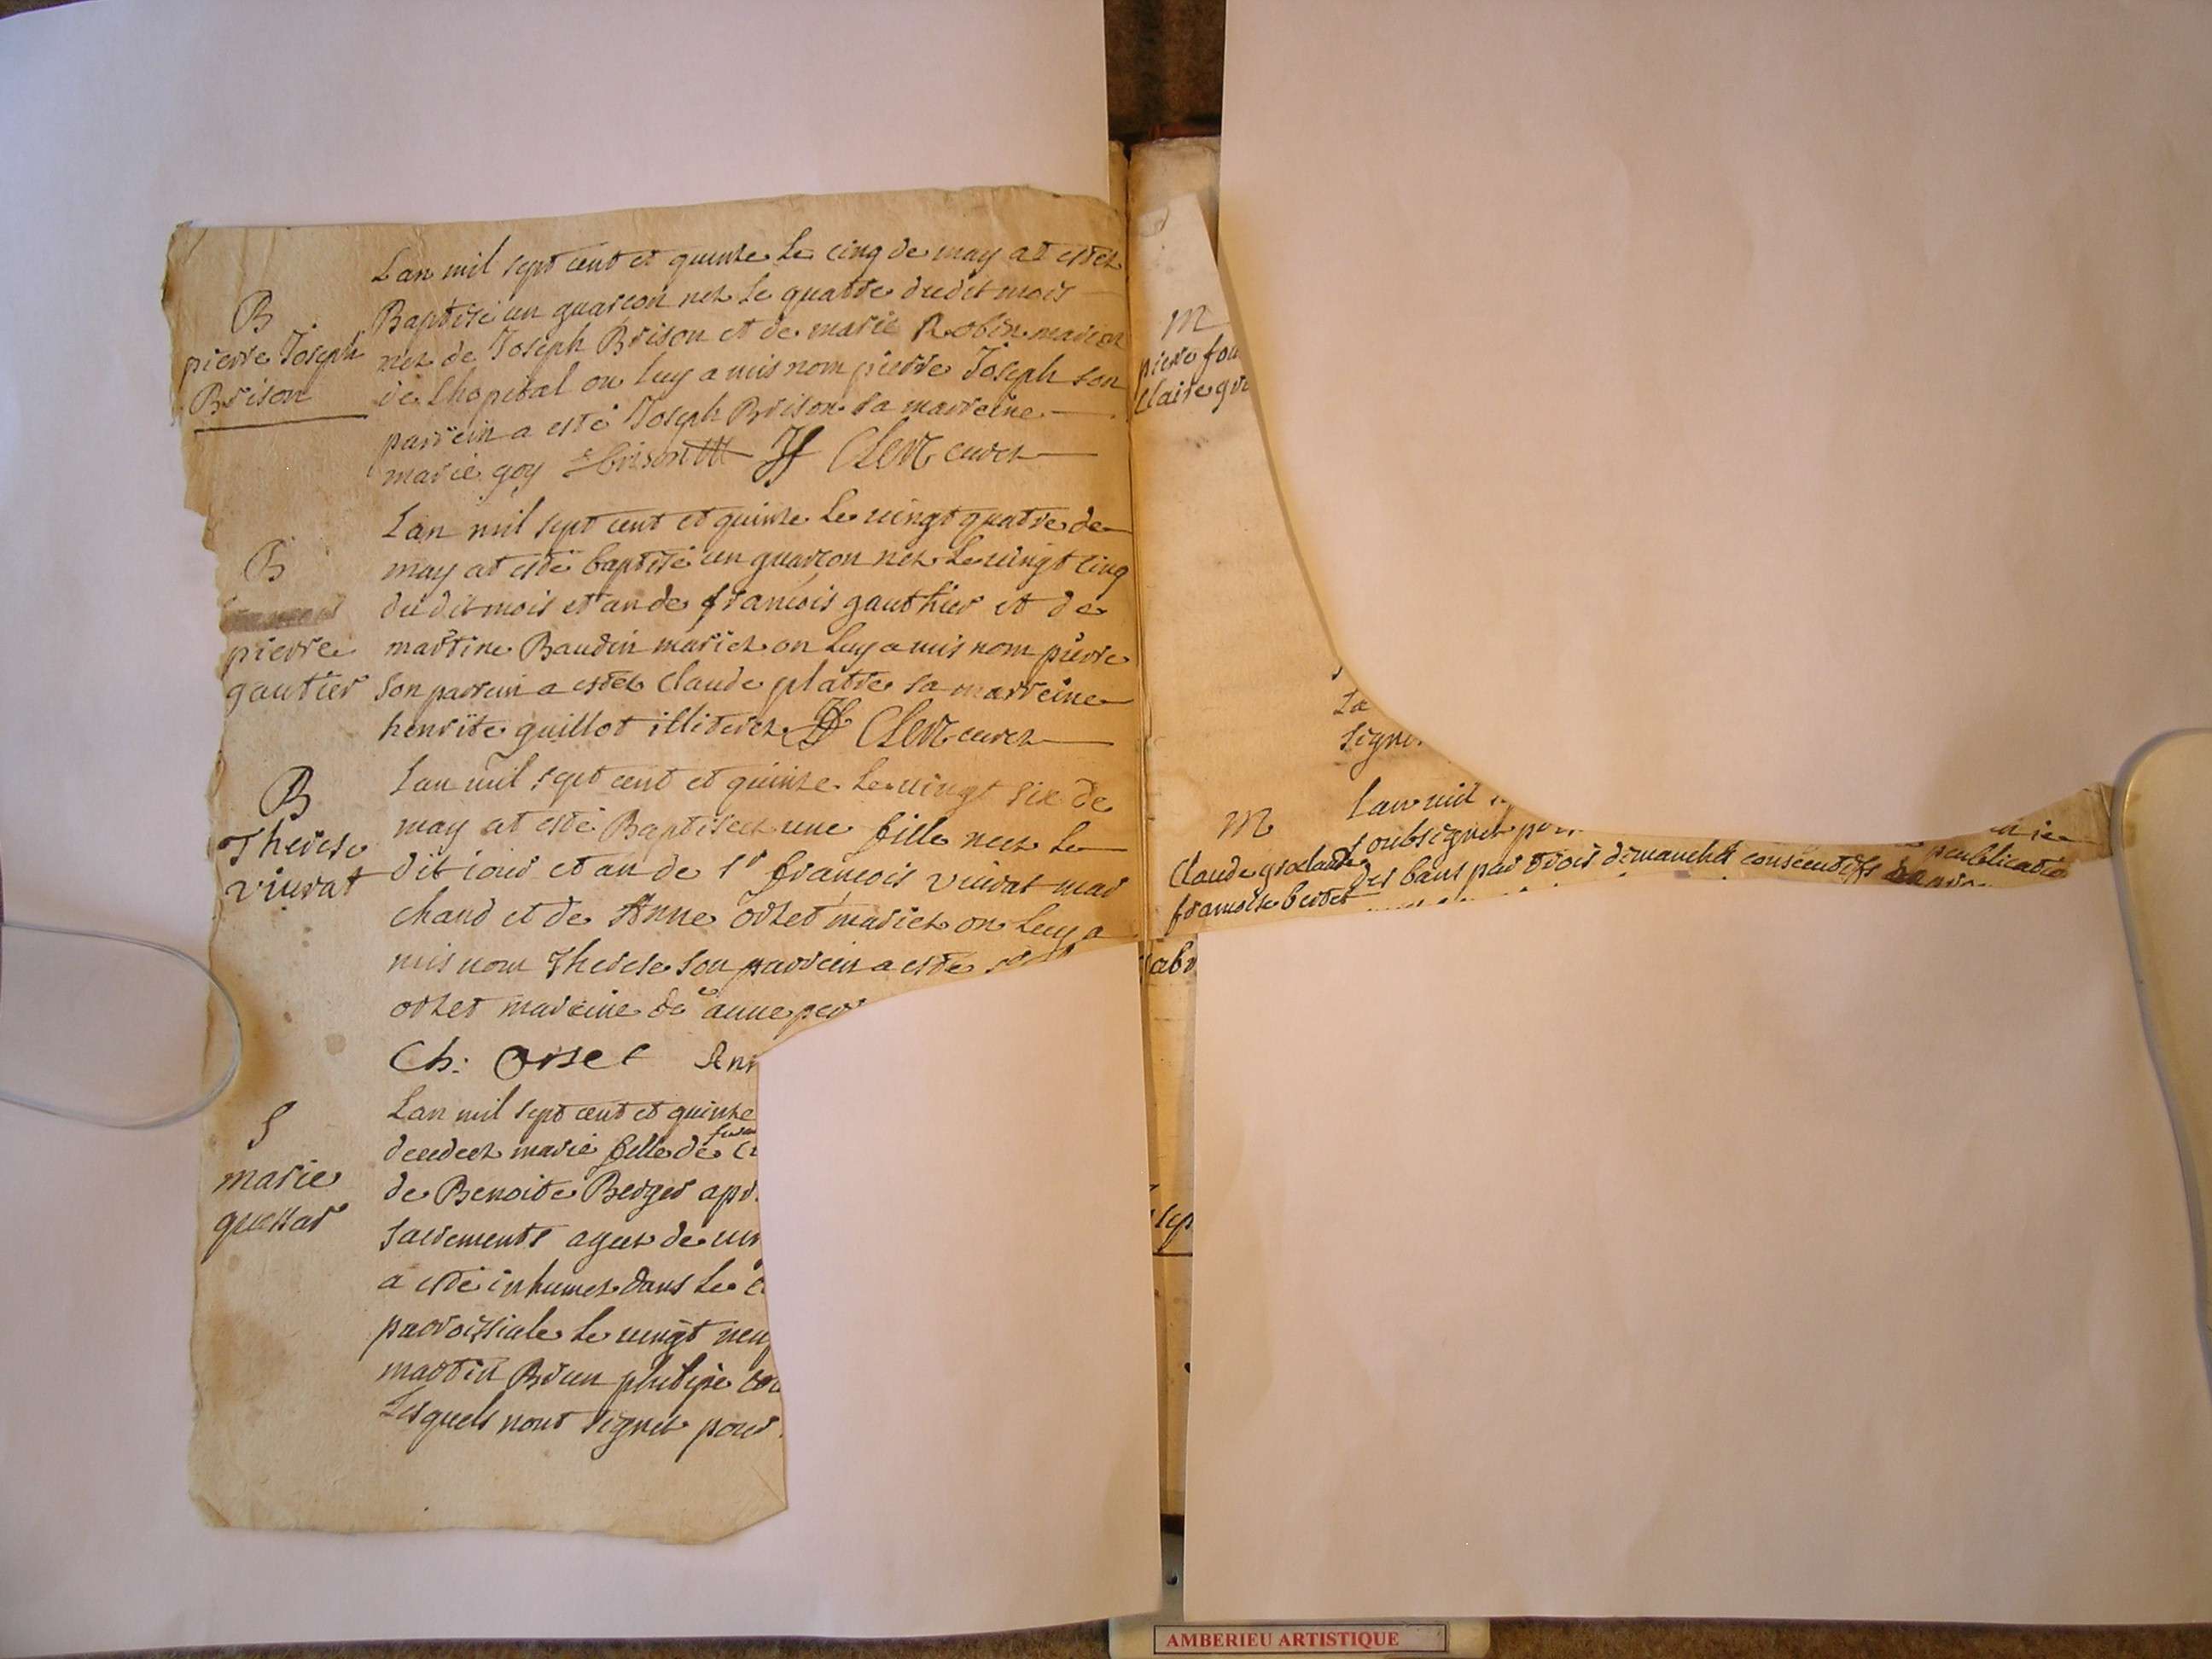 B
pierre Joseph
Brison
Lan mil sept cent et quinze le cinq de may at estez
Baptisé un guarcon nez le quatre dudit mois
nez de Joseph Brison et de marie Robin mariez
de Lhopital on luy a mis nom pierre Joseph son
parrein a esté Joseph Brison sa marreine
marie goy Brison Clerc curez
B
pierre
gautier
Lan mil sept cent et quinze le vingt quatre de
may at esté baptisé un guarcon nez le vingt cinq
du dit mois et an de francois gauthier et de
martine Baudin mariez on luy a mis nom pierre
son parrein a estez Claude platre sa marreine
henrite guillot illiterez Clerc curez
B
Therese
vivrat
Lan mil sept cent et quinze le vingt six de
may at esté Baptiseez une fille neez le
dit iour et an de Sr francois vivrat mar
chand et de Anne orset mariez on luy a
mis nom Therese son parrein a esté
orset mareine de anne per
Ch: Orset Ann
S
marie
quessar
Lan mil sept cent et quinze
decedeez marie fille de
de Benoite Berger apr
sacrements ageez de
a esté inhumez dans le
parroissiale le vingt neuf
martin Brun phibipe
Lesquels nont signez pour
M
pierre fou
Claire gr
La
signe
M
Claude grosclaude
francoise bertet
Lan mil
soubsignez
publicatio
des bans par trois dimanches consecutifs
abr
AMBERIEU ARTISTIQUE